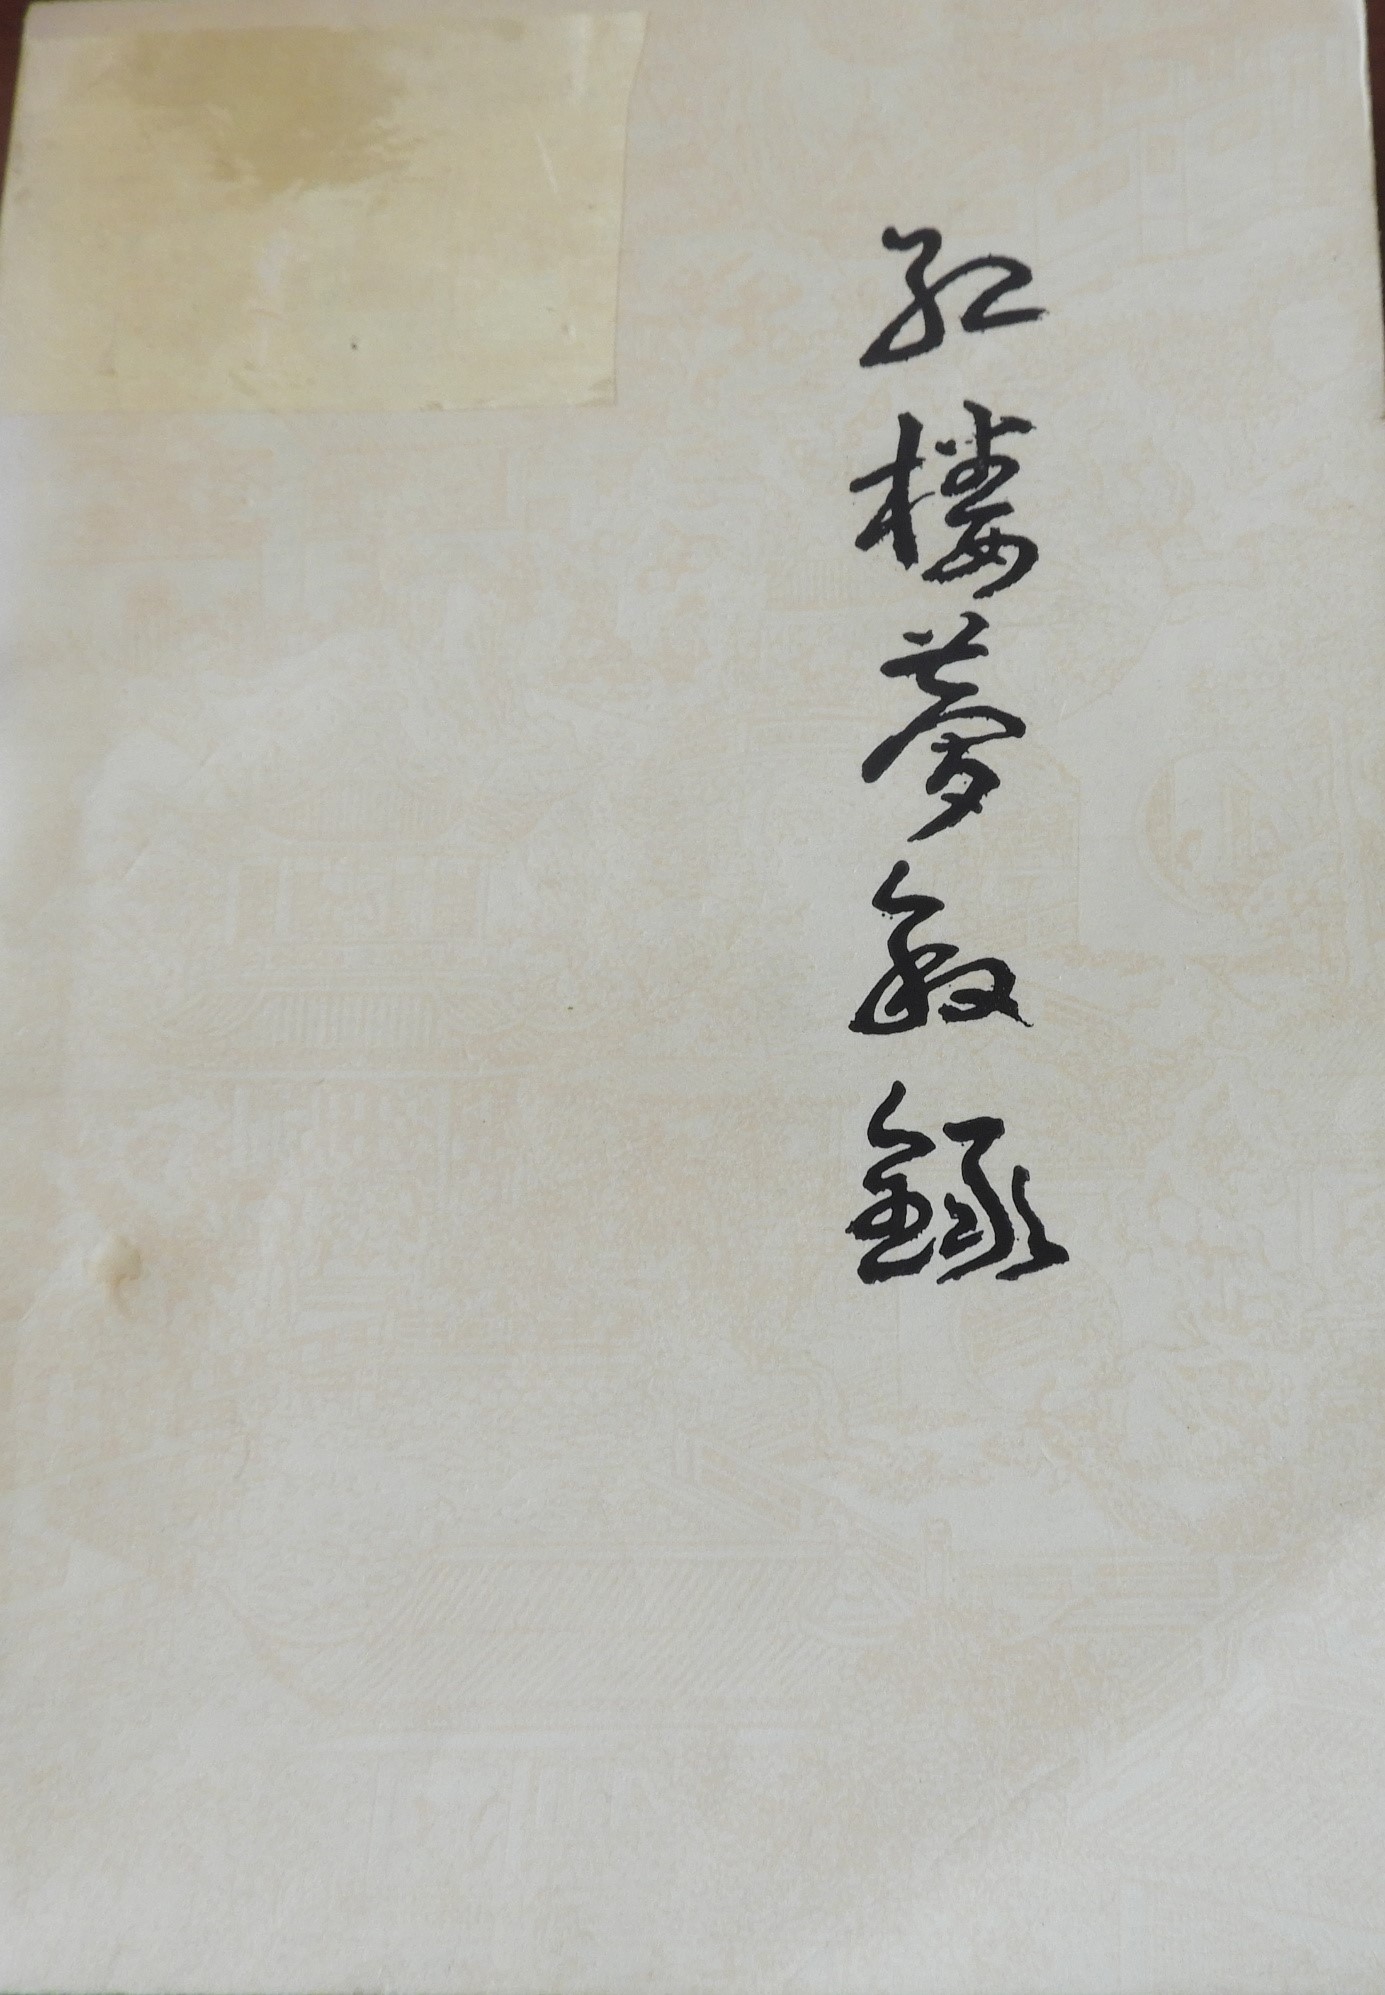 紅樓夢叙録